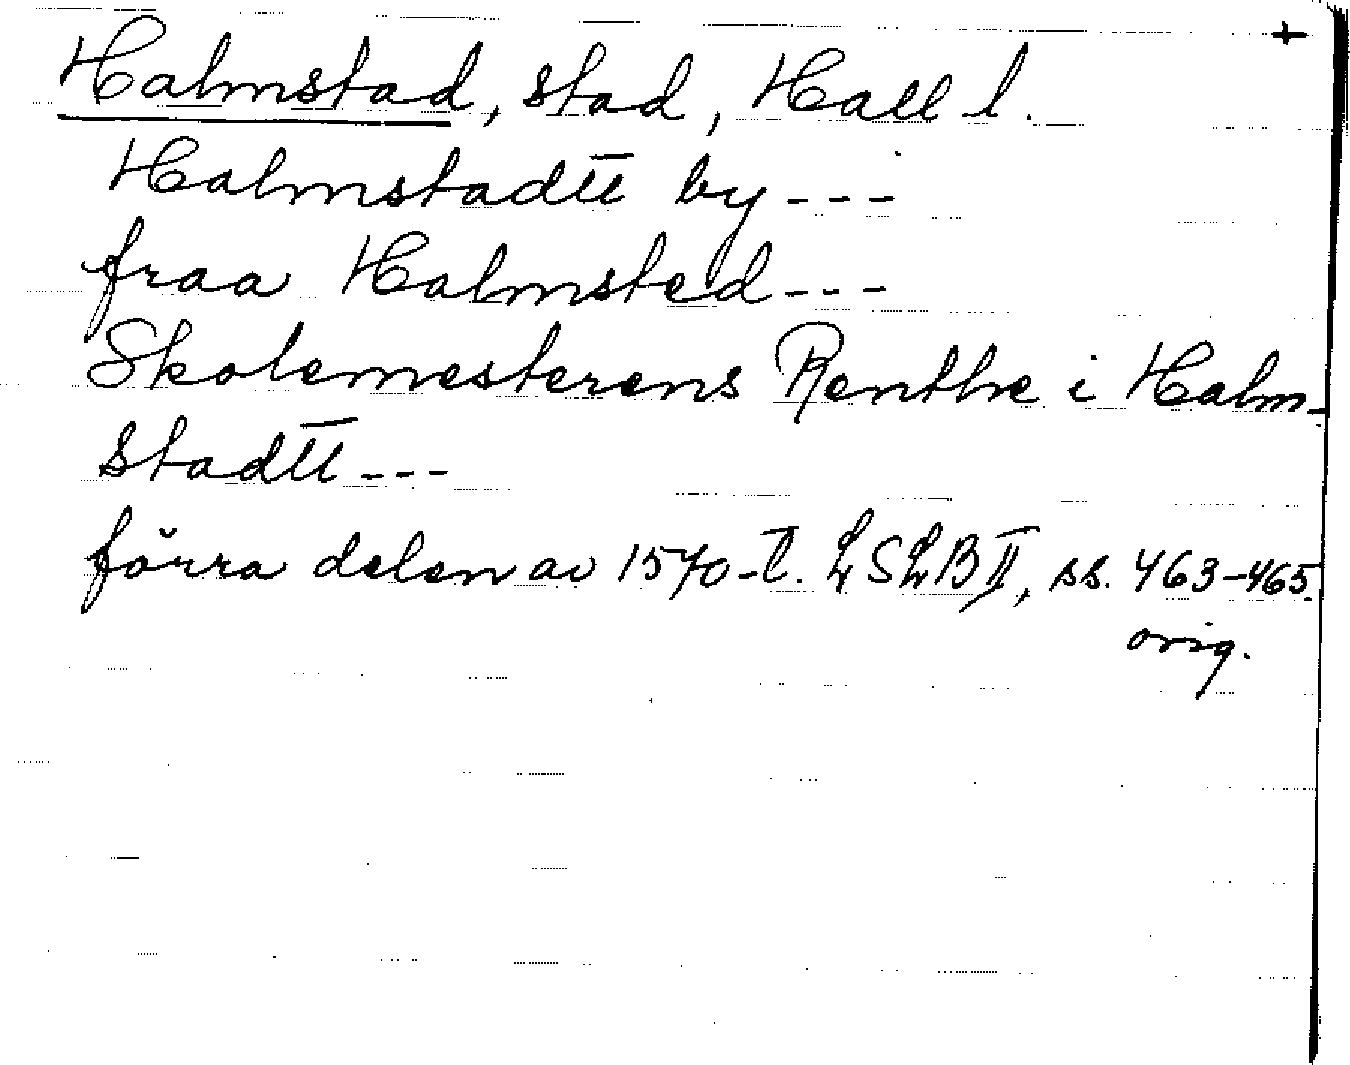 +
Halmstad, stad, Hall l.
Halmstadtt by ---
fraa Halmsted ---
Skolemesterens Renthe i Halm-
stadtt ---
förra delen av 1570-t. LSLB II, ss. 463-465.
orig.